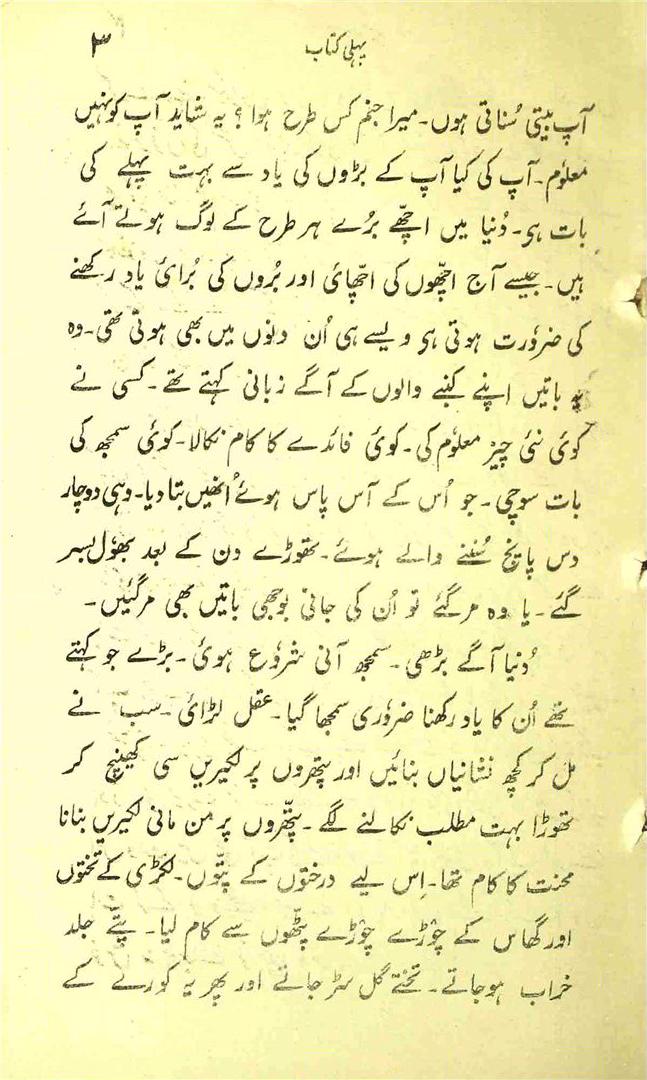 پہلی کتاب
۳
آپ بیتی سُناتی ہوں۔ میرا جنم کس طرح ہوا؟ یہ شاید آپ کو نہیں
معلوٗم۔ آپ کی کیا آپ کے بڑوں کی یاد سے بہت پہلے کی
بات ہی۔ دُنیا میں اچھّے بُرے ہر طرح کے لوگ ہوتے آئے
ہیں۔ جیسے آج اچھّوں کی اچھّائ اور بُروں کی بُرائ یاد رکھنے
کی ضروٗرت ہوتی ہی ویسے ہی اُن دِنوں میں بھی ہوتی تھی۔ وہ
یہ باتیں اپنے کنبے والوں کے آگے زبانی کہتے تھے۔ کسی نے
کوئ نئ چیز معلوٗم کی۔ کوئ فائدے کا کام نکالا۔ کوئ سمجھ کی
بات سوچی۔ جو اُس کے آس پاس ہوئے اُنھیں بتا دیا۔ وہی دو چار
دس پانچ سُننے والے ہوئے۔ تھوڑے دن کے بعد بھوٗل بسر
گئے۔ یا وہ مر گئے تو اُن کی جانی بوجھی باتیں بھی مر گئیں۔
دُنیا آگے بڑھی۔ سمجھ آنی شروٗع ہوئ۔ بڑے جو کہتے
تھے اُن کا یاد رکھنا ضروٗری سمجھا گیا۔ عقل لڑائ۔ سب نے
مل کر کچھ نشانیاں بنائیں اور پتھروں پر لکیریں سی کھینچ کر
تھوڑا بہت مطلب نکالنے لگے۔ پتھّروں پر من مانی لکیریں بنانا
محنت کا کام تھا۔ اِس لیے درختوں کے پتّوں۔ لکڑی کے تختوں
اور گھاس کے چوڑے چوڑے پٹھّوں سے کام لیا۔ پتّے جلد
خراب ہو جاتے۔ تختے گل سڑ جاتے اور پھر یہ کورنے کے